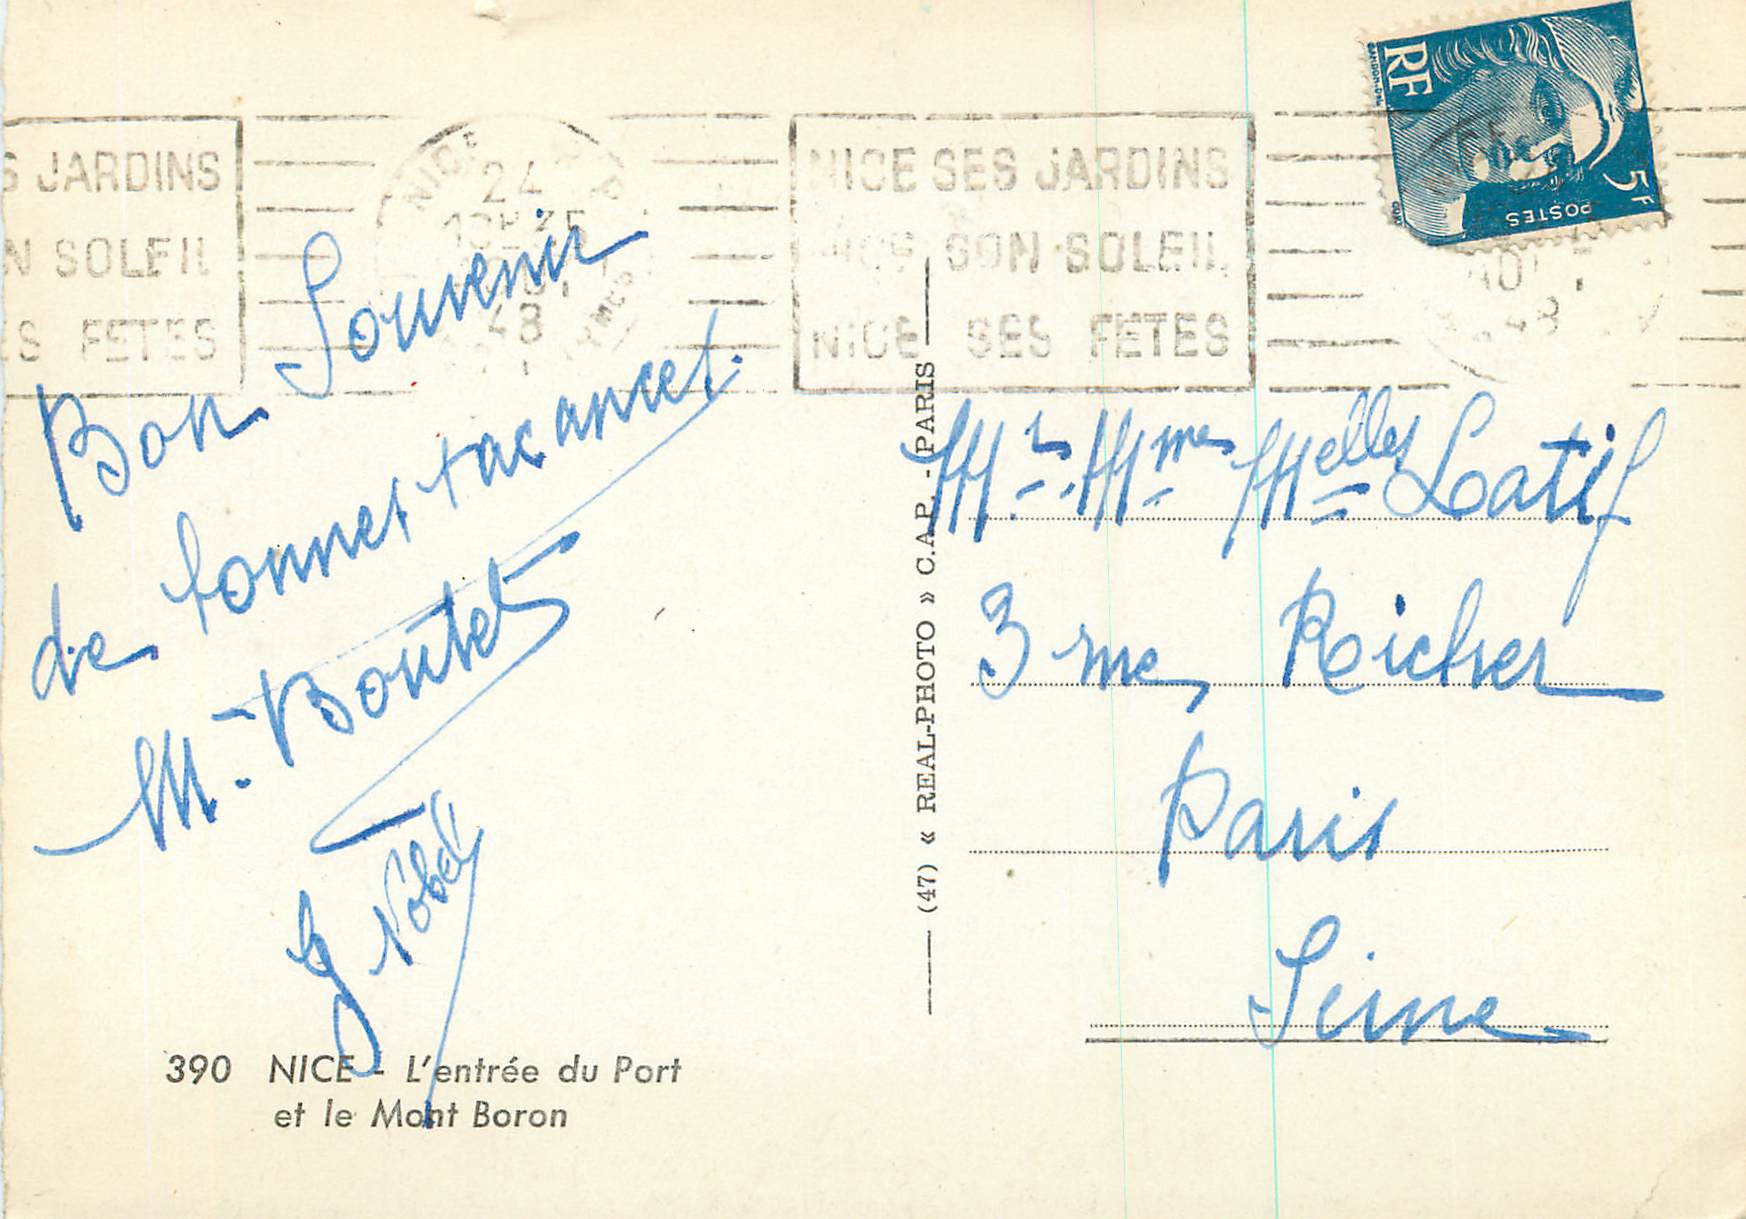 S JARDINS
N SOLEIL
ES FETES
NICE
24
48
NICE SES JARDINS
SON SOLEIL
NICE SES FETES
RF
5F
POSTES
48
Bon Souvenir
de bonnes vacances.
Mr. Boutet
G Nobel
390 NICE - L'entrée du Port
et le Mont Boron
(47) « REAL-PHOTO » C.A.P. - PARIS
Mr. Mme Melles Latif
3 rue Richer
Paris
Seine